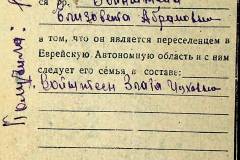 ся гр. Войнштейн
Елизовета Абрамовна
в том, что он является переселенцем в
Еврейскую Автономную область и с ним
следует его семья, в составе:
Войнштеен Злата